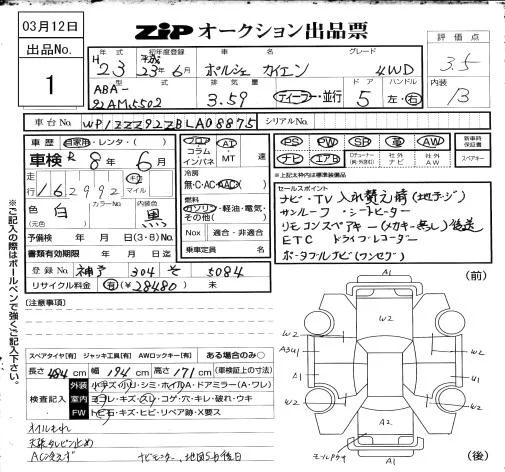 03月12日
ZiP オークション出品票
出品No.
1
評価点
3.5
内装
B
年式
初年度登録
車名
グレード
H23
平成23年6月
ポルシェ カイエン
4WD
型式
排気量
ドア
ハンドル
ABA-
92AM5502
3.59
ディーラー・並行
5
左・右
車台No
WP1ZZZ92ZBLA08875
シリアルNo.
車歴 自家用・レンタ・
車検 R8年6月
走行 162992 キロ マイル
色 白 (元色)
カラーNo.
内装色 黒
予備検 年 月 日(3・8)No.
書類有効期限 年 月 日迄
登録No. 神戸 304 そ 5084
リサイクル料金 有(¥28480) 未
フロア コラム インパネ
AT ・MT 速
冷房
無・C・AC・AAC
燃料
ガソリン・軽油・電気・その他( )
Nox 適合・非適合
乗車定員 名
PS PW SR 革 AW
ナビ エアB TV Dチューナー 社外ナビ 社外AW
新車時保証書
スペアキー
※上記太わくは標準装備品
セールスポイント
ナビ・TV 入れ替え前(地デジ)
サンルーフ ・シートヒーター
リモコンスペアキー(メカキー無し)後送
ETC ドライブレコーダー
ポータブルナビ(ワンセグ)
[注意事項]
スペアタイヤ[有] ジャッキ工具[有] AWロックキー[有] ある場合のみ○
長さ 484 cm 幅 194 cm 高さ 171 cm (車検証の寸法)
検査記入
外装 小キズ・小リ・シミ・ホイルA・ドアミラー(A・ワレ)
室内 ヨゴレ・キズ・スレ・コゲ・穴・キレ・破れ・ウキ
FW トビ石・キズ・ヒビ・リペア跡・X要ス
オイルもれ
天張タレピン止め
ナビモニター、地図SD後日
(前)
A1
W2
W2
W2
A3U1
W2
A1
U1
W2
W2
A2
A1
(後)
※ご記入の際はボールペンで強くご記入下さい。